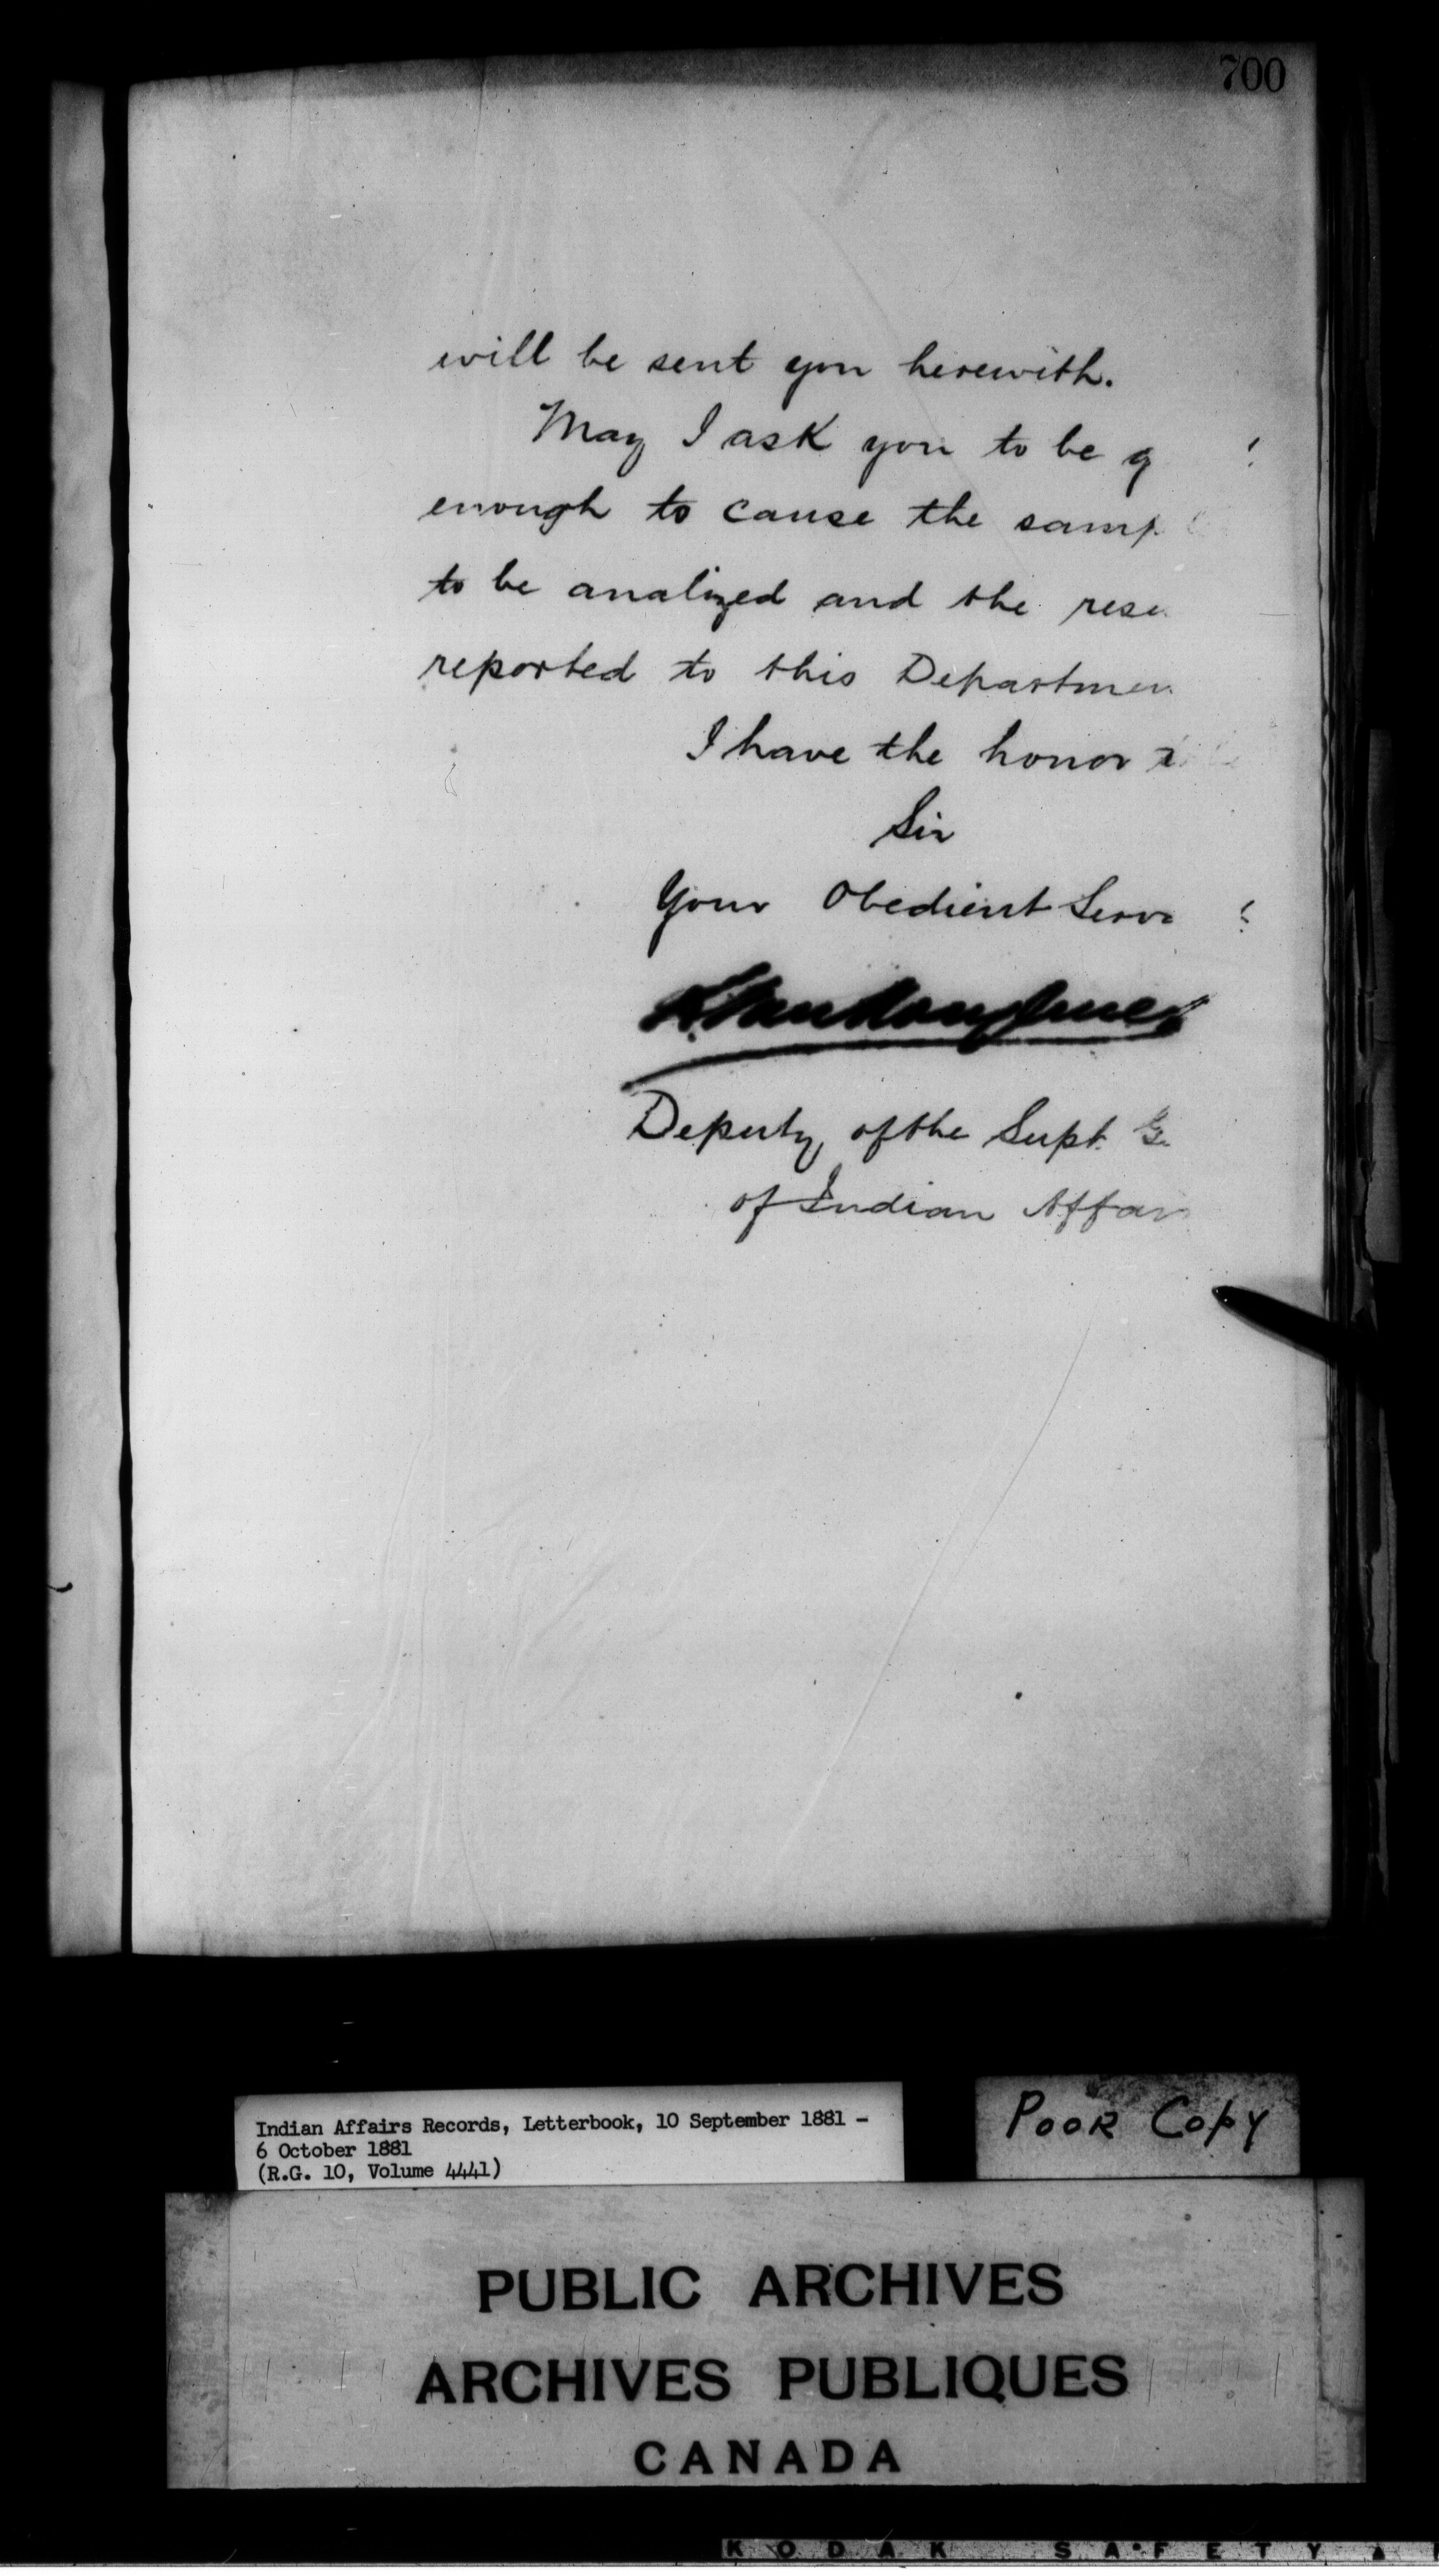 700
will be sent you herewith.
May I ask you to be g
enough to cause the samp
to be analized and the resu
reported to this Departmen
I have the honor to be
Sir
Your Obedient Serva
L VanKoughnet
Deputy of the Supt. G
of Indian Affair
Indian Affairs Records, Letterbook, 10 September 1881 -
6 October 1881
(R.G. 10, Volume 4441)
POOR COPY
PUBLIC ARCHIVES
ARCHIVES PUBLIQUES
CANADA
KODAK SAFETY